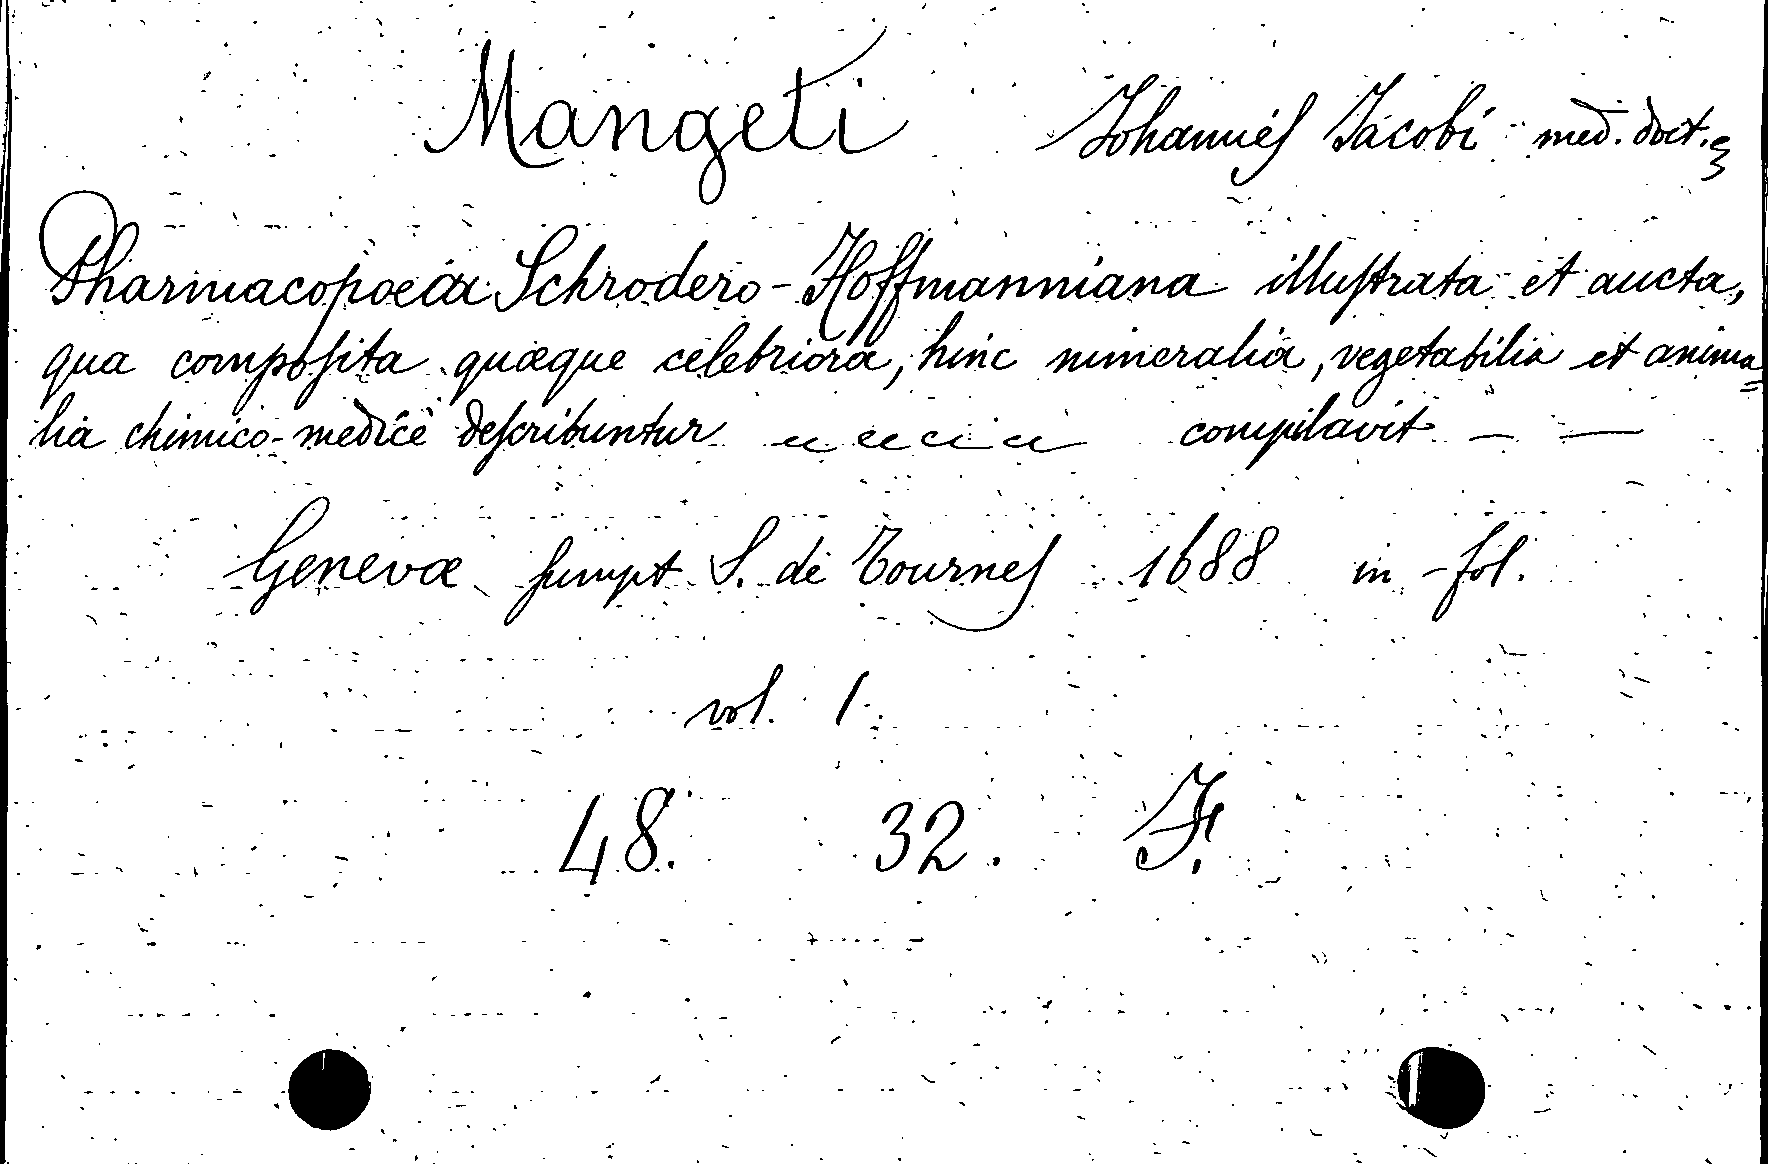 Mangeti Johannes Jacobi med. doct.
Pharmacopoeia Schrodero-Hoffmanniana illustrata et aucta,
qua composita quæque celebriora, hinc mineralia, vegetabilia et anima=
lia chimico-medicè describuntur compilavit — —
Genevæ sumpt S. de Tournes 1688 in-fol.
vol. 1.
48. 32. F.